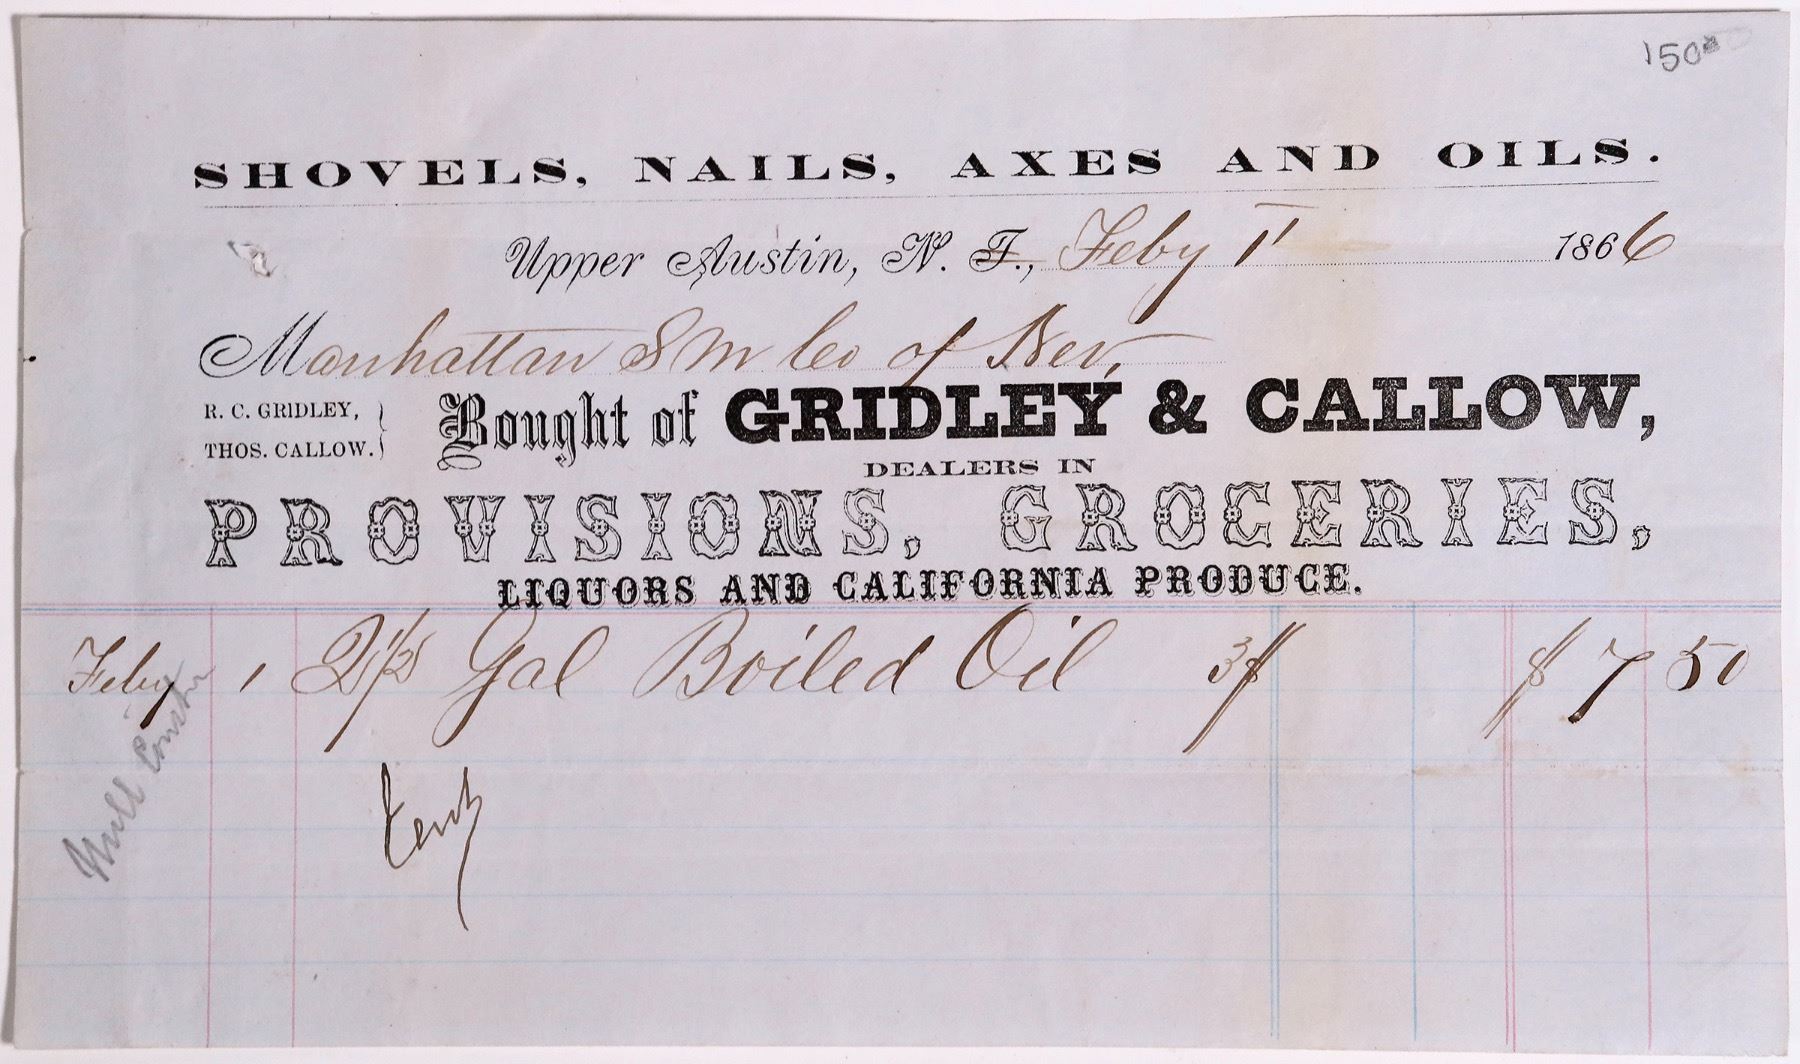 150
SHOVELS, NAILS, AXES AND OILS.
Upper Austin, N. T., Feby 1 1866
Manhattan S M Co of Nev.
R. C. GRIDLEY,
THOS. CALLOW.
Bought of GRIDLEY & CALLOW,
DEALERS IN
PROVISIONS, GROCERIES,
LIQUORS AND CALIFORNIA PRODUCE.
Feby 1 2 1/2 Gal Boiled Oil 3$ $ 7 50
Mill